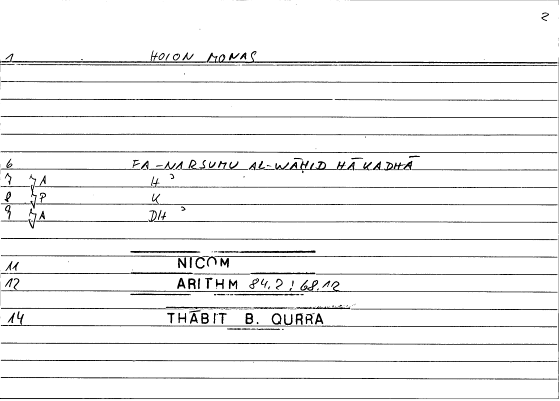 2
1 HOION MONAS
6 FA-NARSUMU AL-WĀḤID HĀKADHĀ
7 A H ʾ
8 P K
9 A DH ʾ
11 NICOM
12 ARITHM 84.2 : 68.12
14 THĀBIT B. QURRA